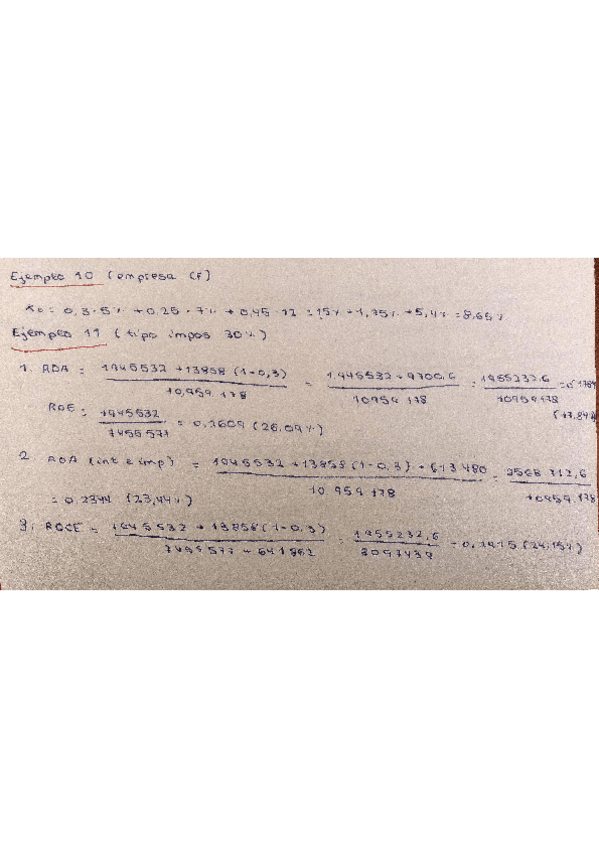 Ejemplo 10 (empresa CF)
= 0,3·5% + 0,25·7% + 0,45·12 = 1,5% + 1,75% + 5,4% = 8,65%
Ejemplo 11 (tipo impos 30%)
1. ROA = 1945532 + 13858 (1-0,3) / 10.959.178 = 1.945532 + 9700,6 / 10959178 = 1955232,6 / 10959178 = 0,1784 (17,84%)
ROE = 1945532 / 7455577 = 0,2609 (26,09%)
2. ROA (int e imp) = 1945532 + 13858 (1-0,3) + 613.480 / 10 959 178 = 2568712,6 / 10959.178
= 0.2344 (23,44%)
3. ROCE = 1945532 + 13858 (1-0,3) / 7455577 + 641862 = 1955232,6 / 8097439 = 0,2415 (24,15%)